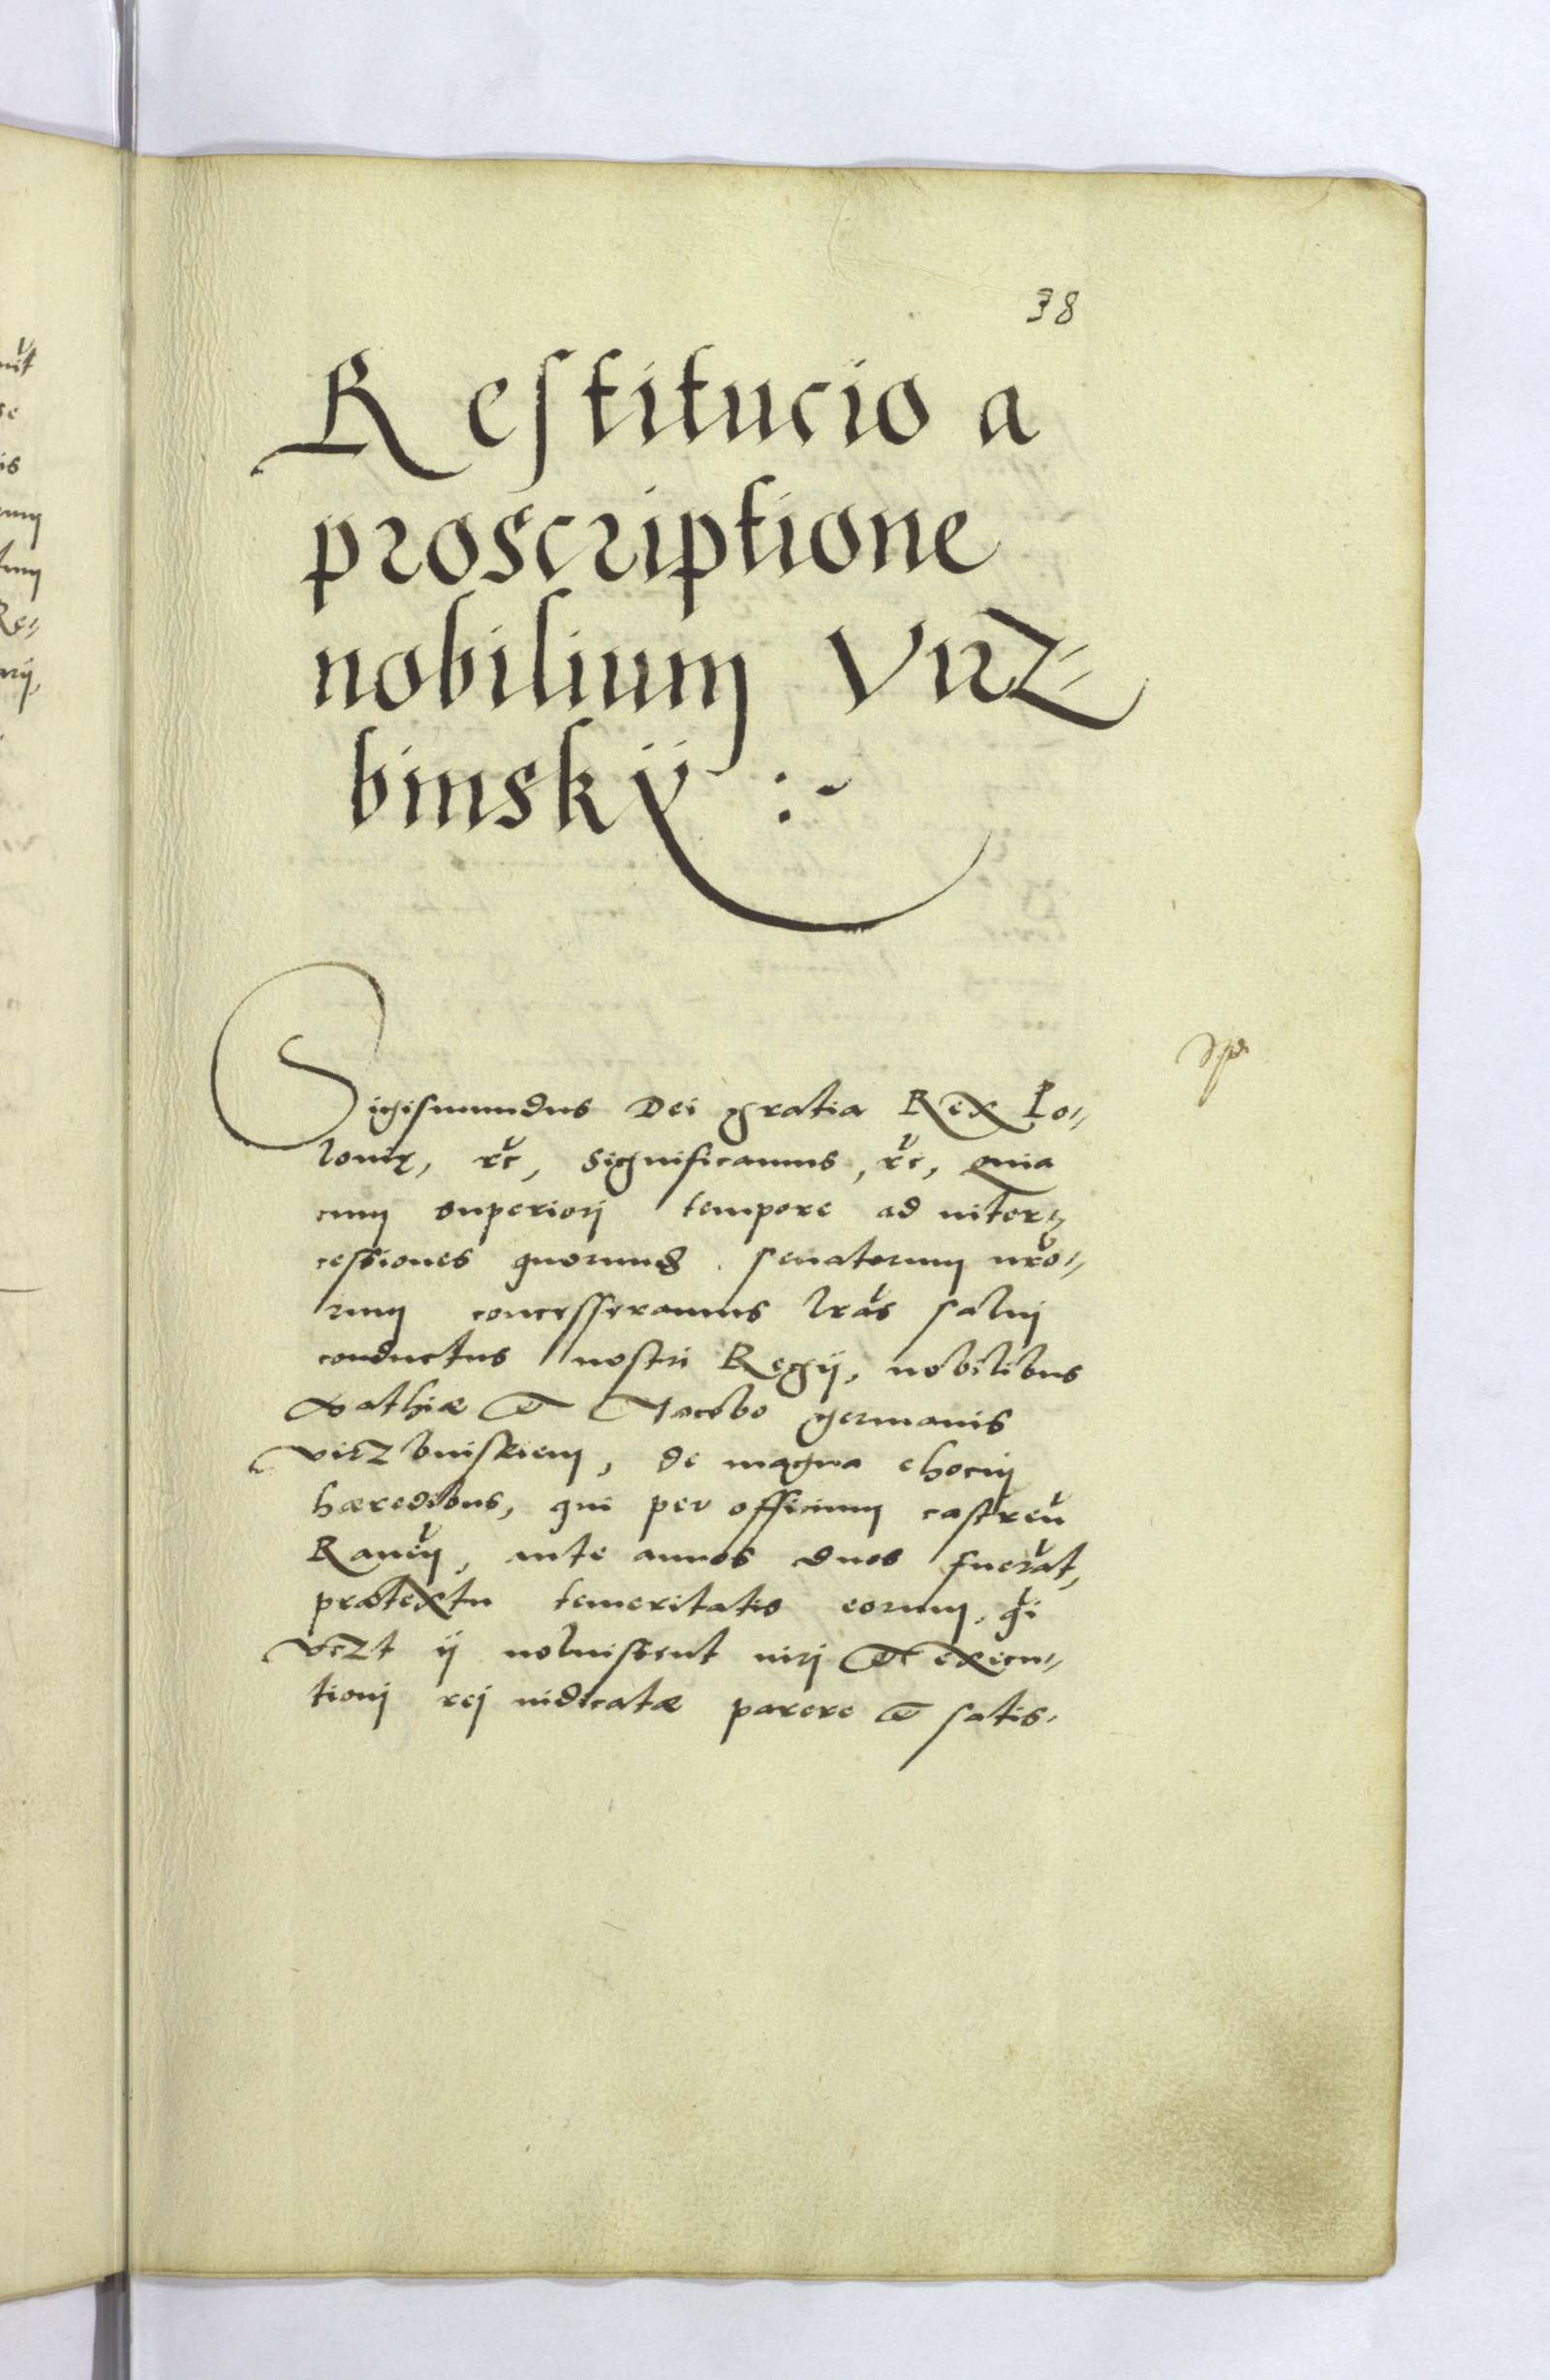 38
Restitucio a
proscriptione
nobilium Virz=
binskÿ :~
Sigismundus Dei gratia Rex Po=
lonię, rc, significamus, rc, quia
cum superiorj tempore ad inter=
cessiones quorumd senatorum nro=
rum concesseramus lras saluj
conductus nostri Regij, nobilibus
Mathiæ et Jacobo germanis
Virzbinskiem, de magna chocim
hæredibus, qui per officium castren
Raven, ante annos duos fuerat,
prætextu temeritatis eorum, qi
vczt ij noluissent iurj et execu=
tionj rej iudicatæ parere et satis-